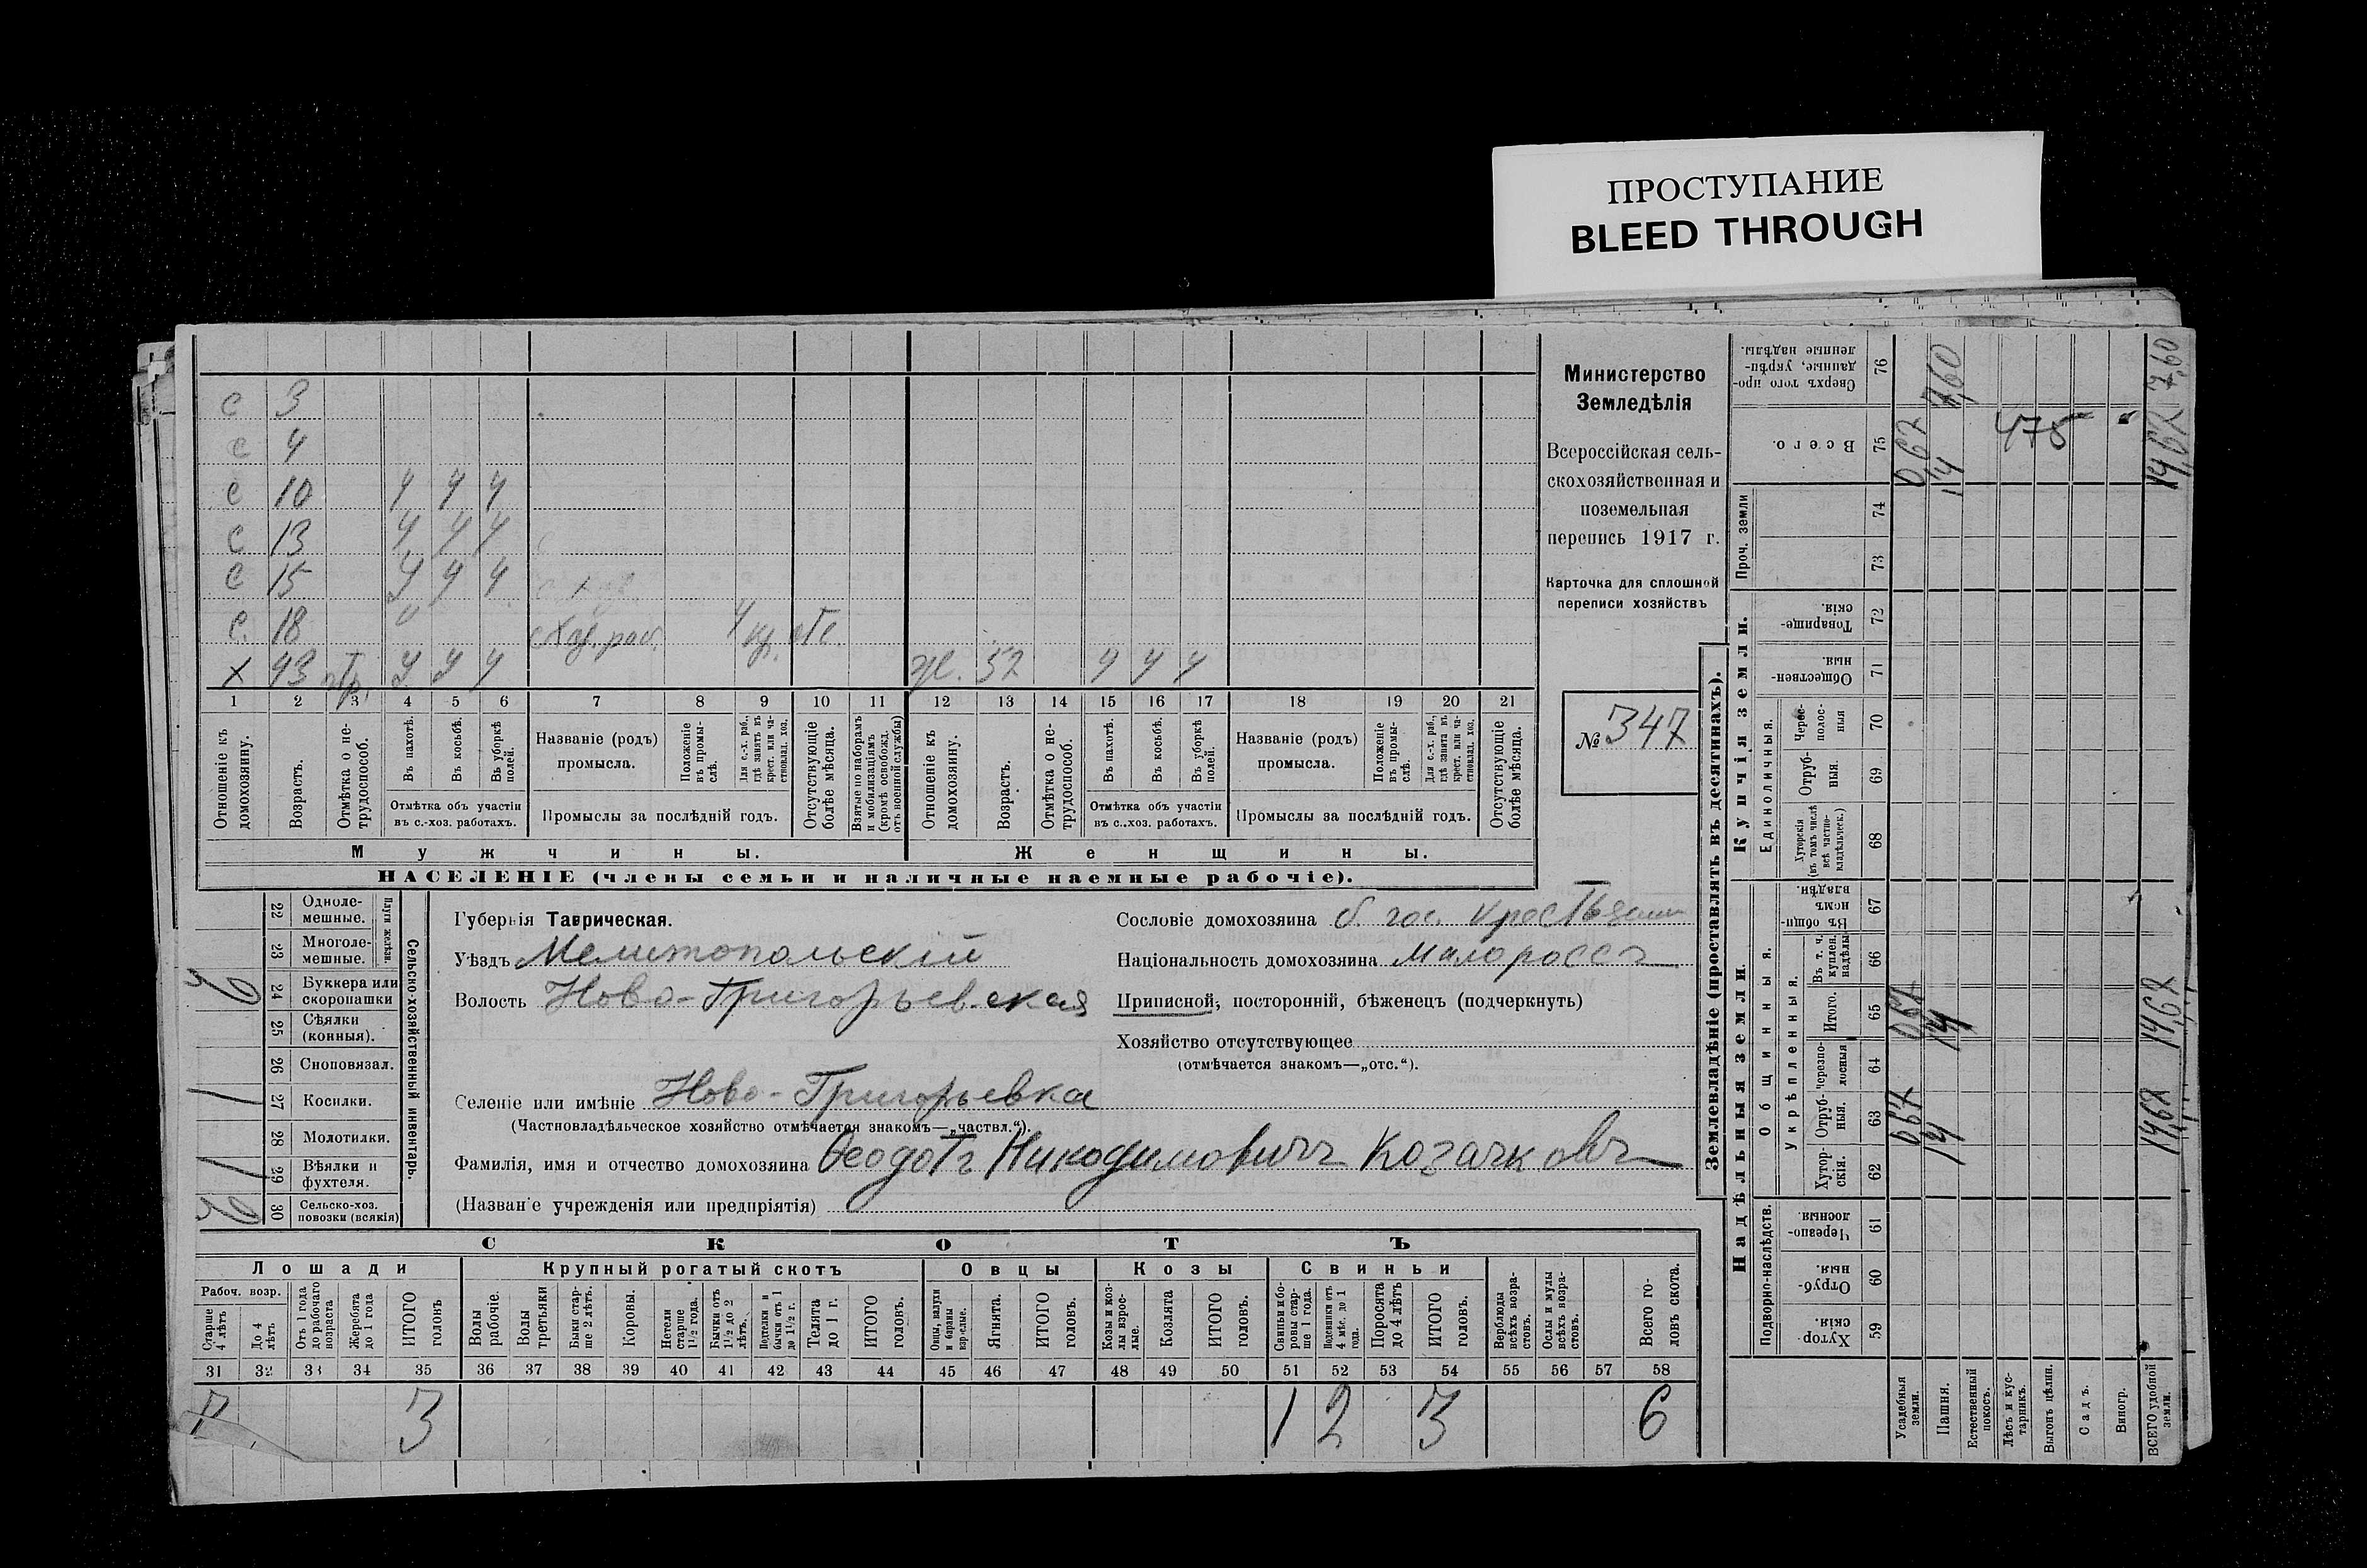 ПРОСТУПАНИЕ
BLEED THROUGH
с 3
с 4
с 10 У У У
с 13 У У У
с 15 У У У
с. 18
х 43 У У У ж. 52 У У У
1 2 3 4 5 6 7 8 9 10 11 12 13 14 15 16 17 18 19 20 21
Отношеніе къ домохозяину.
Возрастъ.
Отмѣтка о нетрудоспособ.
Въ пахотѣ.
Въ косьбѣ.
Въ уборкѣ полей.
Отмѣтка объ участіи
въ с.-хоз. работахъ.
Названіе (родъ)
промысла.
Положеніе въ промыслѣ.
Для с.-х. раб., гдѣ занятъ въ крест. или частновлад. хоз.
Промыслы за послѣдній годъ.
Отсутствующіе болѣе мѣсяца.
Взятые по наборамъ и мобилизаціямъ (кромѣ освобожд. отъ военной службы)
Отношеніе къ домохозяину.
Возрастъ.
Отмѣтка о нетрудоспособ.
Въ пахотѣ.
Въ косьбѣ.
Въ уборкѣ полей.
Отмѣтка объ участіи
въ с.-хоз. работахъ.
Названіе (родъ)
промысла.
Положеніе въ промыслѣ.
Для с.-х. раб., гдѣ занята въ крест. или частновлад. хоз.
Промыслы за послѣдній годъ.
Отсутствующіе болѣе мѣсяца.
Мужчины. Женщины.
НАСЕЛЕНІЕ (члены семьи и наличные наемные рабочіе).
Министерство
Земледѣлія
Всероссійская сель-
скохозяйственная и
поземельная
перепись 1917 г.
Карточка для сплошной
переписи хозяйствъ
№ 347
Сельско-хозяйственный инвентарь.
Плуги желѣзн.
22 Одноле-
мешные.
23 Многоле-
мешные.
24 Буккера или
скоропашки
25 Сѣялки
(конныя).
26 Сноповязал.
27 Косилки. 1
28 Молотилки.
29 Вѣялки и
фухтеля. 1
30 Сельско-хоз.
повозки (всякія)
Губернія Таврическая.
Уѣздъ Мелитопольскій
Волость Ново-Григорьевская
Селеніе или имѣніе Ново-Григорьевка
(Частновладѣльческое хозяйство отмѣчается знакомъ—„частвл.“).
Фамилія, имя и отчество домохозяина Ѳеодотъ Никодимовичъ Козачковъ
(Названіе учрежденія или предпріятія)
Сословіе домохозяина б. гос. крестьянин
Національность домохозяина Малороссъ
Приписной, посторонній, бѣженецъ (подчеркнуть)
Хозяйство отсутствующее
(отмѣчается знакомъ—„отс.“).
СКОТЪ
Лошади Крупный рогатый скотъ Овцы Козы Свиньи
Рабоч. возр.
Старше 4 лѣтъ
До 4 лѣтъ
Отъ 1 года до рабочаго возраста
Жеребята до 1 года
ИТОГО головъ
Волы рабочіе.
Волы третьяки
Быки старше 2 лѣтъ.
Коровы.
Нетели старше 1½ года.
Бычки отъ 1½ до 2 лѣтъ.
Подтелки и бычки отъ 1 до 1½ г.
Телята до 1 г.
ИТОГО головъ.
Овцы, валухи и бараны взрослые.
Ягнята.
ИТОГО головъ.
Козы и козлы взрослые.
Козлята
ИТОГО головъ.
Свиньи и боровы старше 1 года.
Подсвинки отъ 4 мѣс. до 1 года.
Поросята до 4 лѣтъ
ИТОГО головъ.
Верблюды всѣхъ возрастовъ.
Ослы и мулы всѣхъ возрастовъ.
Всего головъ скота.
31 32 33 34 35 36 37 38 39 40 41 42 43 44 45 46 47 48 49 50 51 52 53 54 55 56 57 58
3 1 2 3 6
Землевладѣніе (проставлять въ десятинахъ).
Надѣльныя земли. Купчія земли.
Подворно-наслѣдств.
Общинныя.
Укрѣпленныя.
Единоличныя.
Проч. земли
Хуторскія. 59
Отрубныя. 60
Черезполосныя. 61
Хуторскія. 62
Отрубныя. 63
Черезполосныя 64
Итого. 65
Въ т. ч. куплен. надѣлы 66
Въ общинномъ владѣн. 67
Хуторскія (въ томъ числѣ всѣ частновладѣльческ.) 68
Отрубныя. 69
Черезполосныя 70
Общественныя. 71
Товарищескія. 72
73
74
Всего. 75
Сверхъ того проданные, укрѣпленные надѣлы. 76
Усадебныя земли. 067 067 0,67
Пашня. 14 14 14 7,60
Естественный покосъ.
Лѣсъ и кустарникъ. 475
Выгонъ цѣлин.
Садъ.
Виногр.
ВСЕГО удобной земли. 14,67 14,67 14,67 7,60